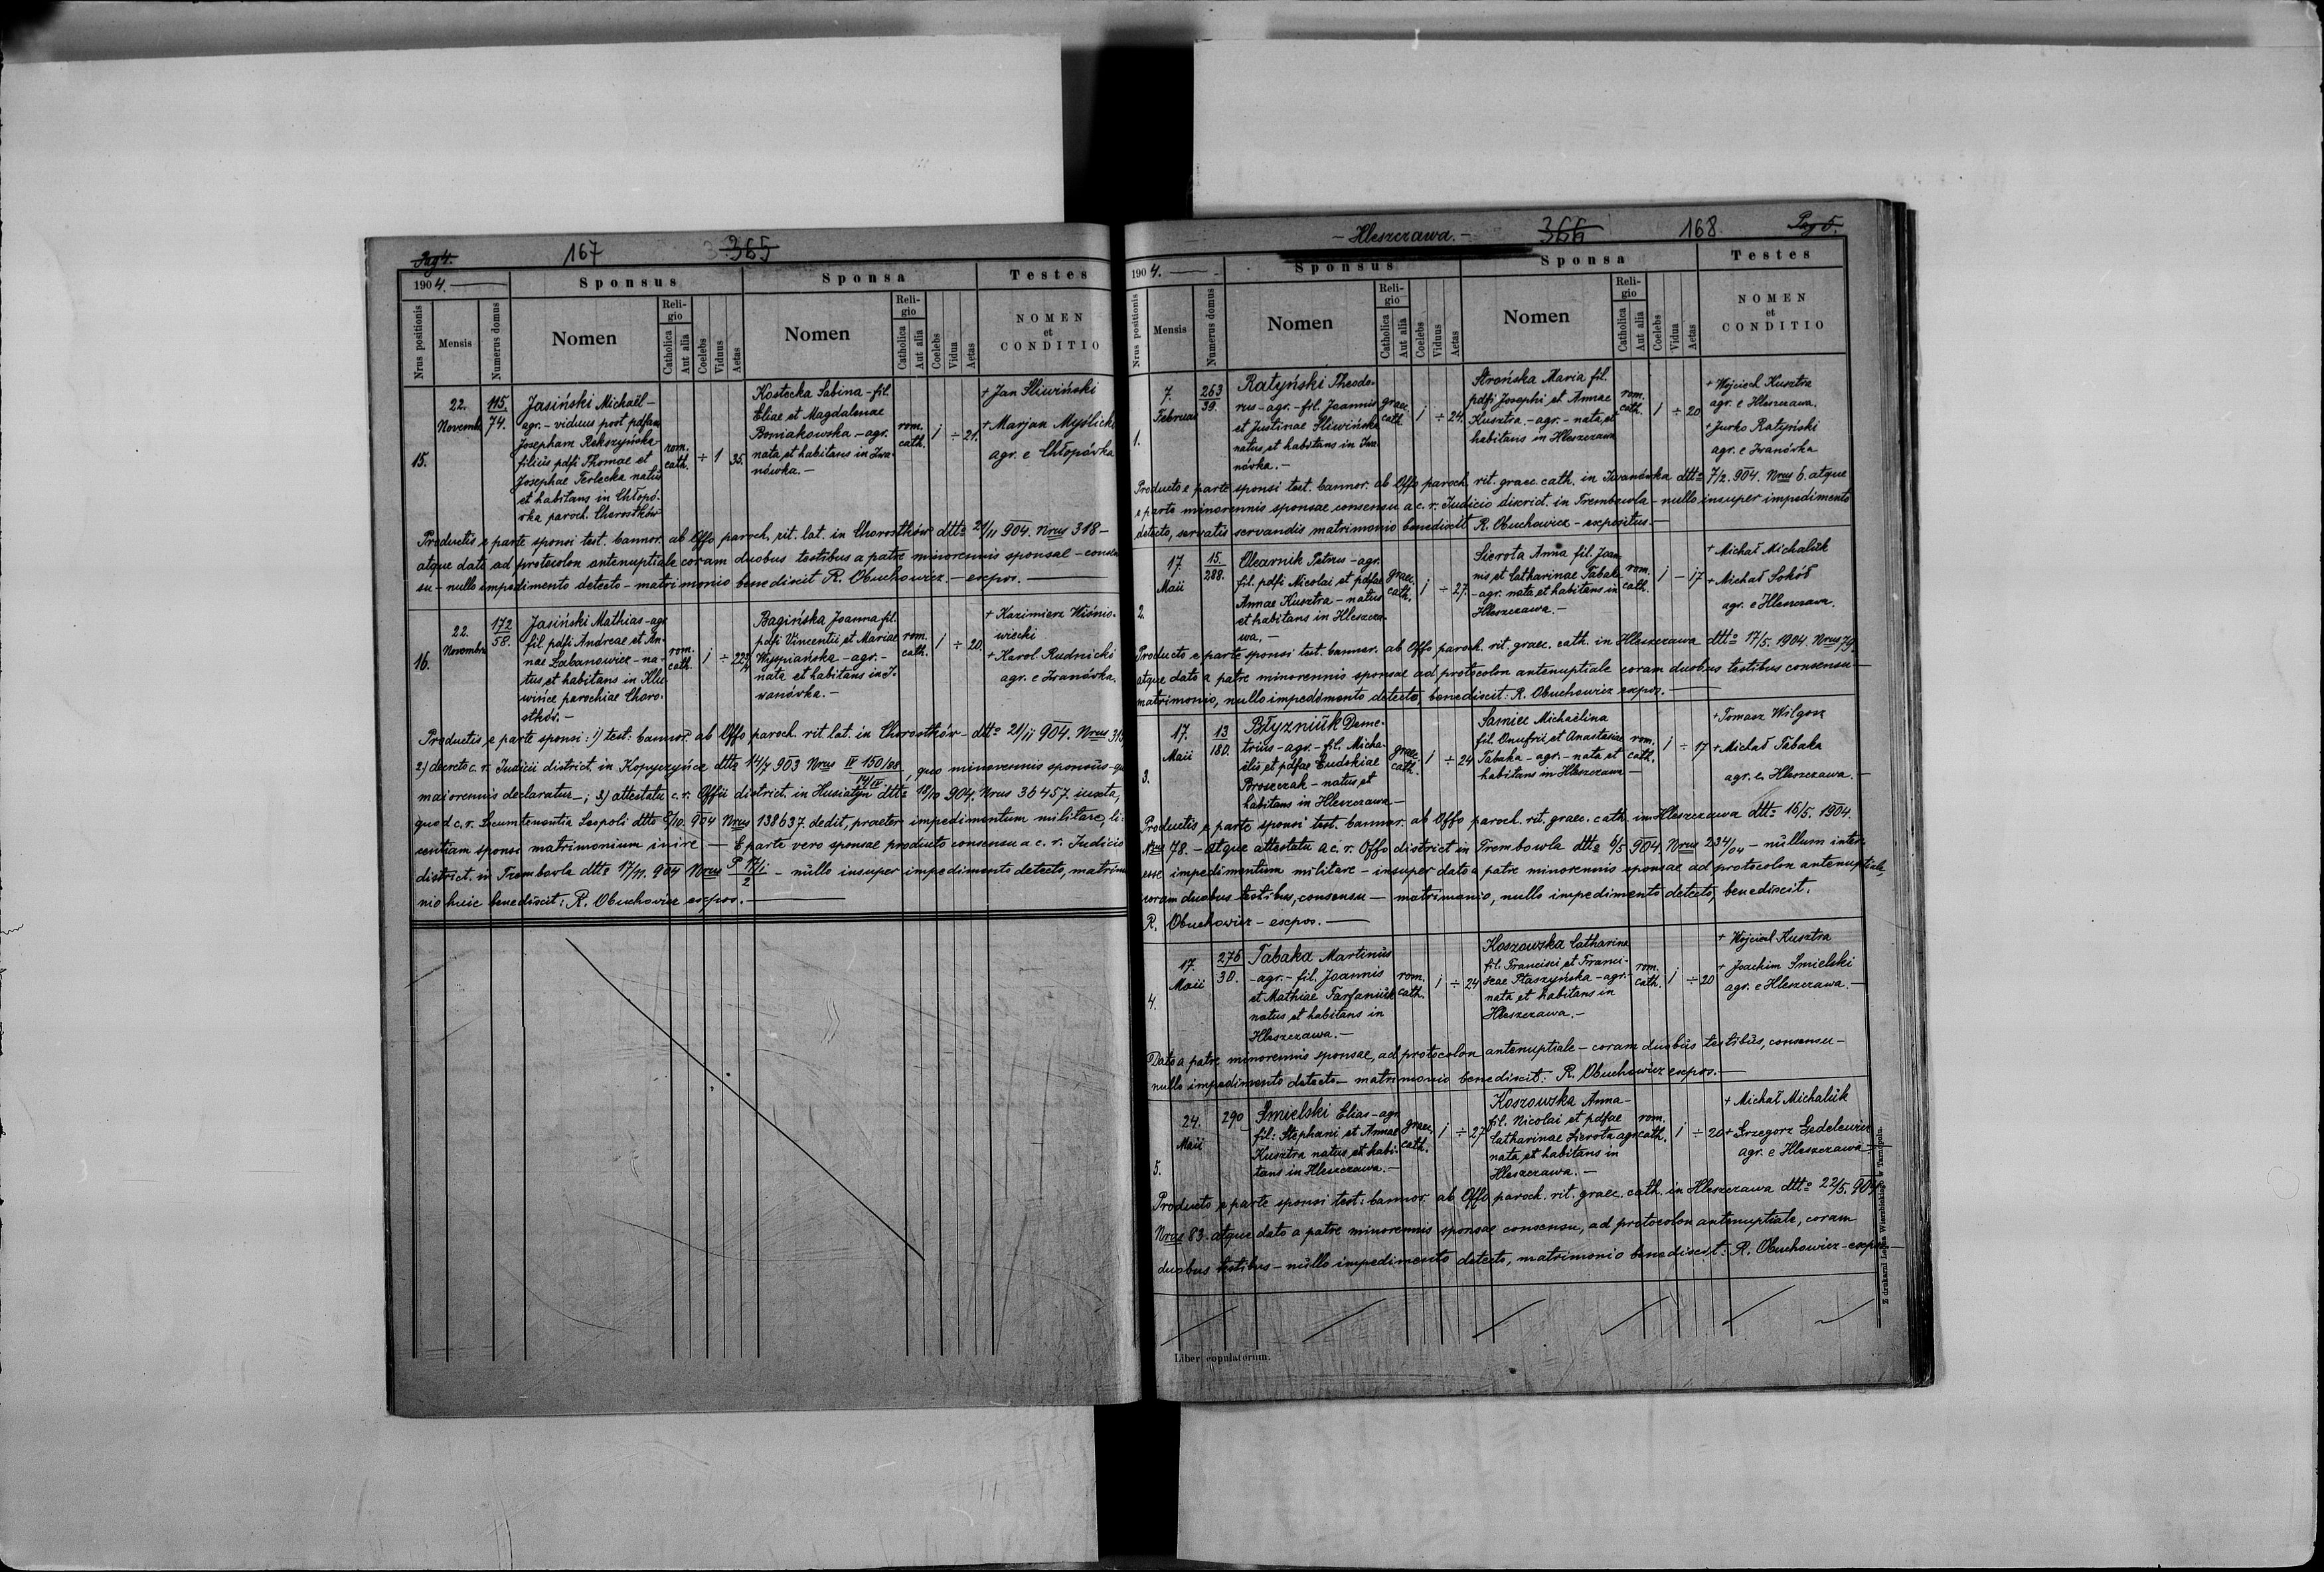 Pag 4.
167
365
1904.
Sponsus
Sponsa
Testes
Nrus positionis
Mensis
Numerus domus
Nomen
Religio
Catholica
Aut alia
Coelebs
Viduus
Aetas
Nomen
Religio
Catholica
Aut alia
Coelebs
Vidua
Aetas
NOMEN
et
CONDITIO
15.
22.
Novembr
115.
74.
Jasiński Michaël -
agr. - viduus post pdfam
Josepham Rekszyńska
filius pdfi Thomae et
Josephae Terlecka natus
et habitans in Chłopó-
wka paroch. Chorostków
rom.
cath.
÷
1
35.
Kostecka Sabina - fil.
Eliae et Magdalenae
Boniakowska - agr.
nata et habitans in Iwa-
nówka. -
rom.
cath.
1
÷
21.
+ Jan Sliwiński
+ Marjan Myślicki
agr. e Chłopówka
Productis e parte sponsi test. bannor. ab Offo paroch. rit. lat. in Chorostków dtto 21/11 904. Nrus 318 -
atque dato ad protocolon antenuptiale coram duobus testibus a patre minorennis sponsae - consen
su - nullo impedimento detecto - matrimonio benedixit R. Obuchowicz. - expos. -
16.
22.
Novembr
172
58.
Jasiński Mathias - agr
fil. pdfi Andreae et An-
nae Łabanowicz - na-
tus et habitans in Klu-
wińce parochiae Choro-
stków. -
rom.
cath.
1
÷
Bagińska Joanna fil.
pdfi Vincentii et Mariae
Wyspiańska - agr. -
nata et habitans in I-
wanówka. -
rom.
cath.
1
÷
20.
+ Kazimierz Wiśnio-
wiecki
+ Karol Rudnicki
agr. e Iwanówka.
Productis e parte sponsi: 1) test: bannor. ab Offo paroch. rit. lat. in Chorostków - dtto 21/11 904. Nrus 319
2) decreto c. r. Judicii district. in Kopyczyńce dtto 14/7 903 Nrus IV 150/03
14/IV, quo minorennis sponsus - qua
maiorennis declaratur -; 3) attestatu c. r. Offii district. in Husiatyn dtto 18/10 904. Nrus 36457. iuxta,
quod c. r. Locumtenentia Leopoli dtto 8/10. 904 Nrus 138637. dedit, praeter impedimentum militare, li-
centiam sponso matrimonium inire. - E parte vero sponsae producto consensu a c. r. Judicio
district. in Trembowla dtto 17/11. 904 Nrus P 17/1
2 - nullo insuper impedimento detecto, matrimo
nio huic benedixit: R. Obuchowicz expos. -
- Hleszczawa. -
366
168
Pag 5.
1904.
Sponsus
Sponsa
Testes
Nrus positionis
Mensis
Numerus domus
Nomen
Religio
Catholica
Aut alia
Coelebs
Viduus
Aetas
Nomen
Religio
Catholica
Aut alia
Coelebs
Vidua
Aetas
NOMEN
et
CONDITIO
1.
7.
Februar
263
39.
Ratyński Theodo-
rus - agr. - fil. Joannis
et Justinae Sliwińska
natus et habitans in Iwa
nówka. -
graec.
cath.
1
÷
24.
Strońska Maria fil.
pdfi Josephi et Annae
Kusztra - agr. - nata et
habitans in Hleszczawa
rom.
cath.
1
÷
20
+ Wojciech Kusztra
agr. e Hleszczawa.
+ Jurko Ratyński
agr. e Iwanówka
Producto e parte sponsi test. bannor. ab Offo paroch. rit. graec. cath. in Iwanówka dtto 7/2. 904. Nrus 6. atque
e parte minorennis sponsae consensu a c. r. Judicio district. in Trembowla - nullo insuper impedimento
detecto, servatis servandis matrimonio benedixit R. Obuchowicz - expositus. -
2.
17.
Maii
15.
288.
Olearnik Petrus - agr.
fil. pdfi Nicolai et pdfae
Annae Kusztra - natus
et habitans in Hleszcza-
wa. -
graec.
cath.
1
÷
27.
Sierota Anna fil. Joan
nis et Catharinae Tabaka
- agr. nata et habitans in
Hleszczawa. -
rom.
cath.
1
-
17
+ Michał Michaluk
+ Michał Sokół
agr. e Hleszczawa.
Producto e parte sponsi test. bannor. ab Offo paroch. rit. graec. cath. in Hleszczawa dtto 17/5. 1904. Nrus 79.
atque dato a patre minorennis sponsae ad protocolon antenuptiale coram duobus testibus consensu -
matrimonio, nullo impedimento detecto, benedixit: R. Obuchowicz expos. -
3.
17.
Maii
13
180.
Błyzniuk Deme-
trius - agr. - fil. Micha-
ëlis et pdfae Eudokiae
Broszczak - natus et
habitans in Hleszczawa -
graec.
cath.
1
÷
24
Samiec Michaëlina
fil. Onufrii et Anastasiae
Tabaka - agr. - nata et
habitans in Hleszczawa -
rom.
cath.
1
÷
17
+ Tomasz Wilgosz
+ Michał Tabaka
agr. e Hleszczawa. -
Productis e parte sponsi test. bannor. ab Offo paroch. rit. graec. cath. in Hleszczawa dtto 16/5. 1904.
Nrus 78. - atque attestatu a c. r. Offo district in Trembowla dtto 6/5 904 Nrus 234/04 - nullum inter-
esse impedimentum militare - insuper dato a patre minorennis sponsae ad protocolon antenuptiale,
coram duobus testibus, consensu - matrimonio, nullo impedimento detecto, benedixit.
R. Obuchowicz - expos. -
4.
17.
Maii
276
30.
Tabaka Martinus
- agr. - fil. Joannis
et Mathiae Farfaniuk
natus et habitans in
Hleszczawa. -
rom.
cath.
1
÷
24
Koszowska Catharina
fil. Francisci et Franci-
scae Ptaszyńska - agr. -
nata et habitans in
Hleszczawa. -
rom.
cath.
1
÷
20
+ Wojciech Kusztra
+ Joachim Smielski
agr. e Hleszczawa. -
Dato a patre minorennis sponsae, ad protocolon antenuptiale - coram duobus testibus, consensu -
nullo impedimento detecto - matrimonio benedixit: R. Obuchowicz expos. -
5.
24.
Maii
290
Smielski Elias - agr
fil: Stephani et Annae
Kusztra natus et habi-
tans in Hleszczawa. -
graec.
cath.
1
÷
27
Koszowska Anna -
fil. Nicolai et pdfae
Catharinae Sierota agr.
nata et habitans in
Hleszczawa. -
rom.
cath.
1
÷
20
+ Michał Michaluk
+ Grzegorz Gedelewicz
agr. e Hleszczawa -
Producto e parte sponsi test. bannor. ab Offo paroch. rit. graec. cath. in Hleszczawa dtto 22/5. 904
Nrus 83. atque dato a patre minorennis sponsae consensu, ad protocolon antenuptiale, coram
duobus testibus - nullo impedimento detecto, matrimonio benedixit: R. Obuchowicz - expos -
Liber copulatorum.
Z drukarni Leona Wierzbickiego w Tarnopolu.